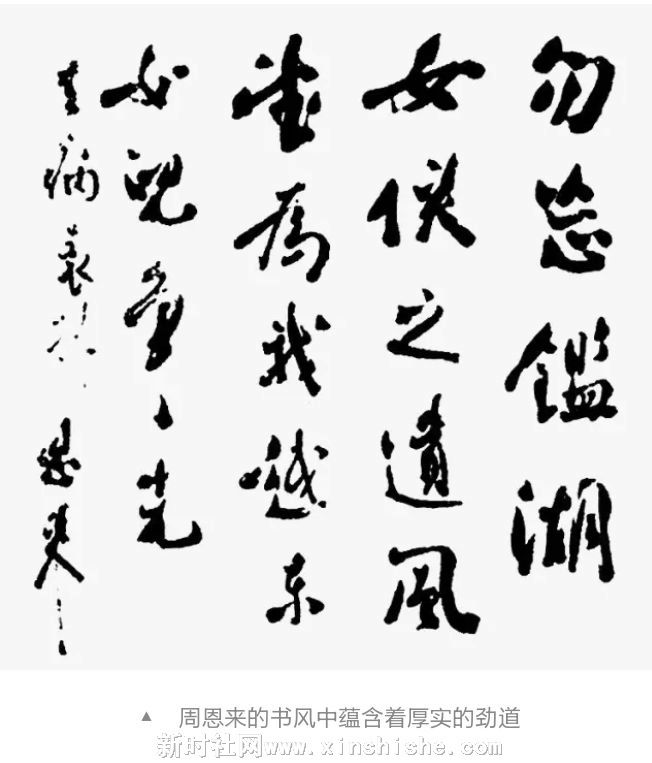 勿忘鑑湖
女俠之遺風
望為我越東
女兒爭光
去病表妹 恩来
▲ 周恩来的书风中蕴含着厚实的劲道
新时社网www.xinshishe.com